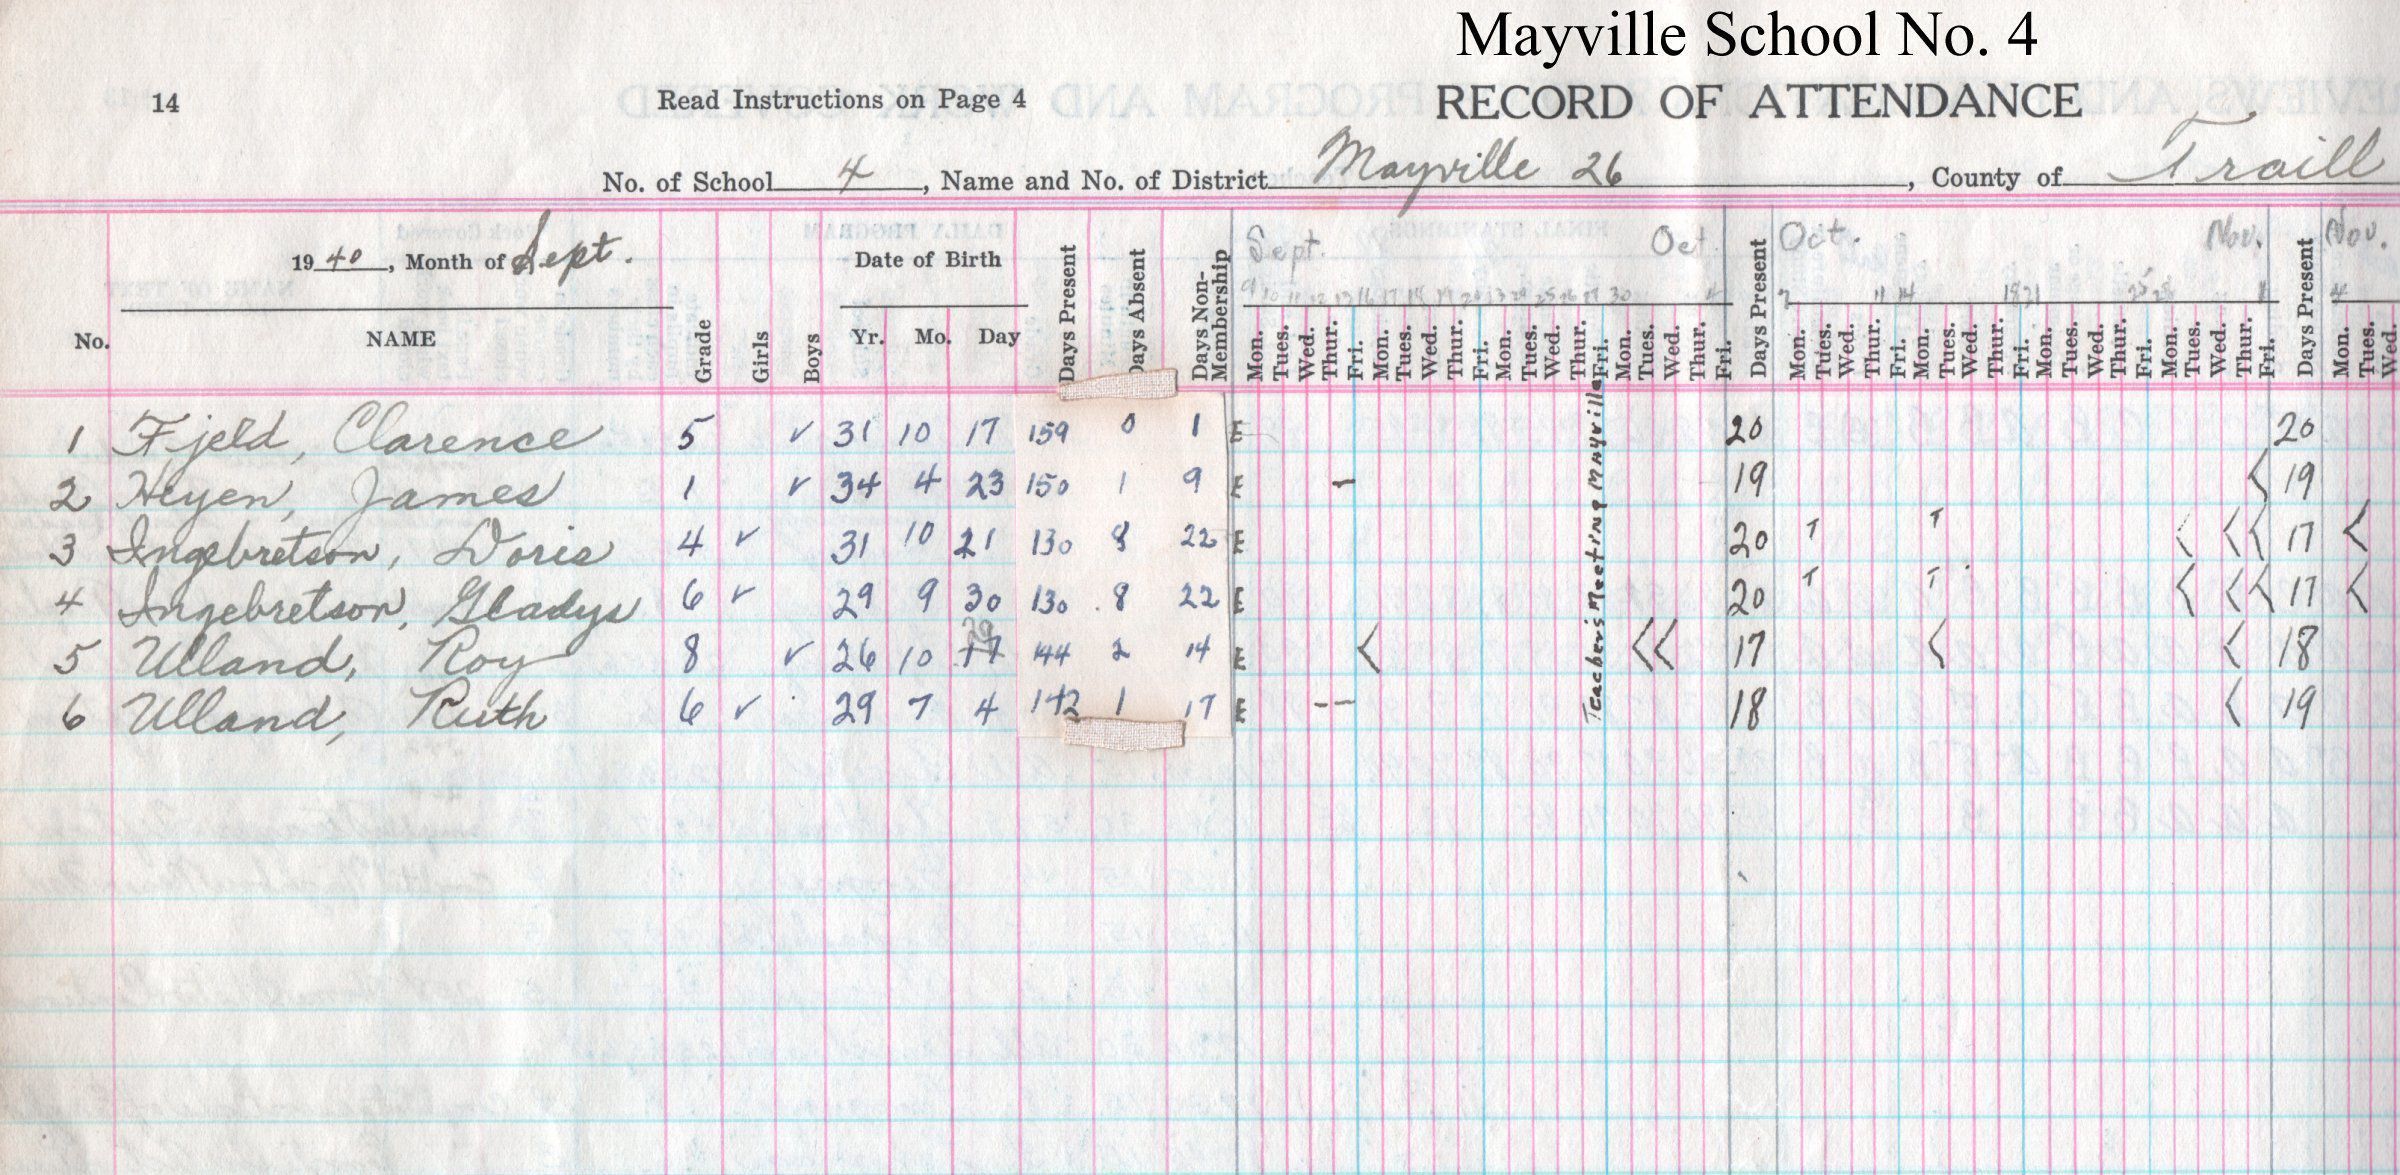 Mayville School No. 4
14 Read Instructions on Page 4 RECORD OF ATTENDANCE
No. of School 4, Name and No. of District Mayville 26, County of Traill
1940, Month of Sept. Date of Birth Sept. Oct. Oct. Nov. Nov.
No. NAME Grade Girls Boys Yr. Mo. Day Days Present Days Absent Days Non-Membership Mon. Tues. Wed. Thur. Fri. Mon. Tues. Wed. Thur. Fri. Mon. Tues. Wed. Thur. Fri. Mon. Tues. Wed. Thur. Fri. Days Present Mon. Tues. Wed. Thur. Fri. Mon. Tues. Wed. Thur. Fri. Mon. Tues. Wed. Thur. Fri. Mon. Tues. Wed. Thur. Fri. Days Present Mon. Tues. Wed.
Teacher's Meeting Mayville
1 Fjeld, Clarence 5 ✓ 31 10 17 159 0 1 E 20 20
2 Heyen, James 1 ✓ 34 4 23 150 1 9 E - 19 < 19
3 Ingebretson, Doris 4 ✓ 31 10 21 130 8 22 E 20 T T < < < 17 <
4 Ingebretson, Gladys 6 ✓ 29 9 30 130 8 22 E 20 T T < < < 17 <
5 Ulland, Roy 8 ✓ 26 10 144 2 14 E < < < 17 < < 18
6 Ulland, Ruth 6 ✓ 29 7 4 142 1 17 E - - 18 < 19